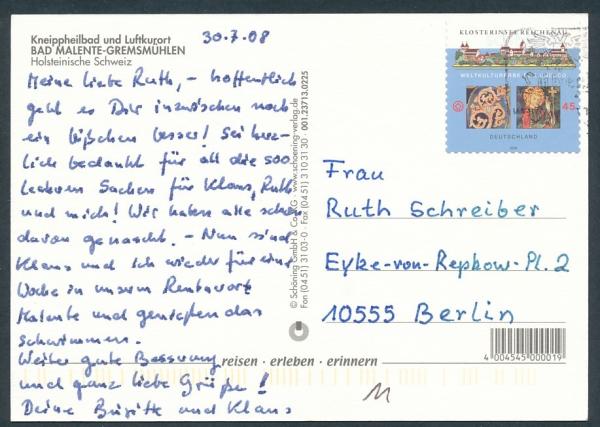 Kneippheilbad und Luftkurort
BAD MALENTE-GREMSMÜHLEN
Holsteinische Schweiz
30.7.08
Meine liebe Ruth, – hoffentlich
geht es Dir inzwischen noch
ein bißchen besser! Sei herz-
lich bedankt für all die sooo
leckeren Sachen für Klaus, Ruth
und mich! Wir haben alle schon
davon genascht. – Nun sind
Klaus und ich wieder für eine
Woche in unserm
Malente und genießen das
Schwimmen.
Weiter gute Besserung
und ganz liebe Grüße!
Deine Brigitte und Klaus
reisen · erleben · erinnern
© Schöning GmbH & Co. KG · www.schoening-verlag.de
Fon (04 51) 31 03-0 · Fax (04 51) 3 10 31 30 · 001.23713.0225
KLOSTERINSEL REICHENAU
WELTKULTURERBE DER UNESCO
45
DEUTSCHLAND
Frau
Ruth Schreiber
Eyke-von-Repkow-Pl. 2
10555 Berlin
4 004545 000019